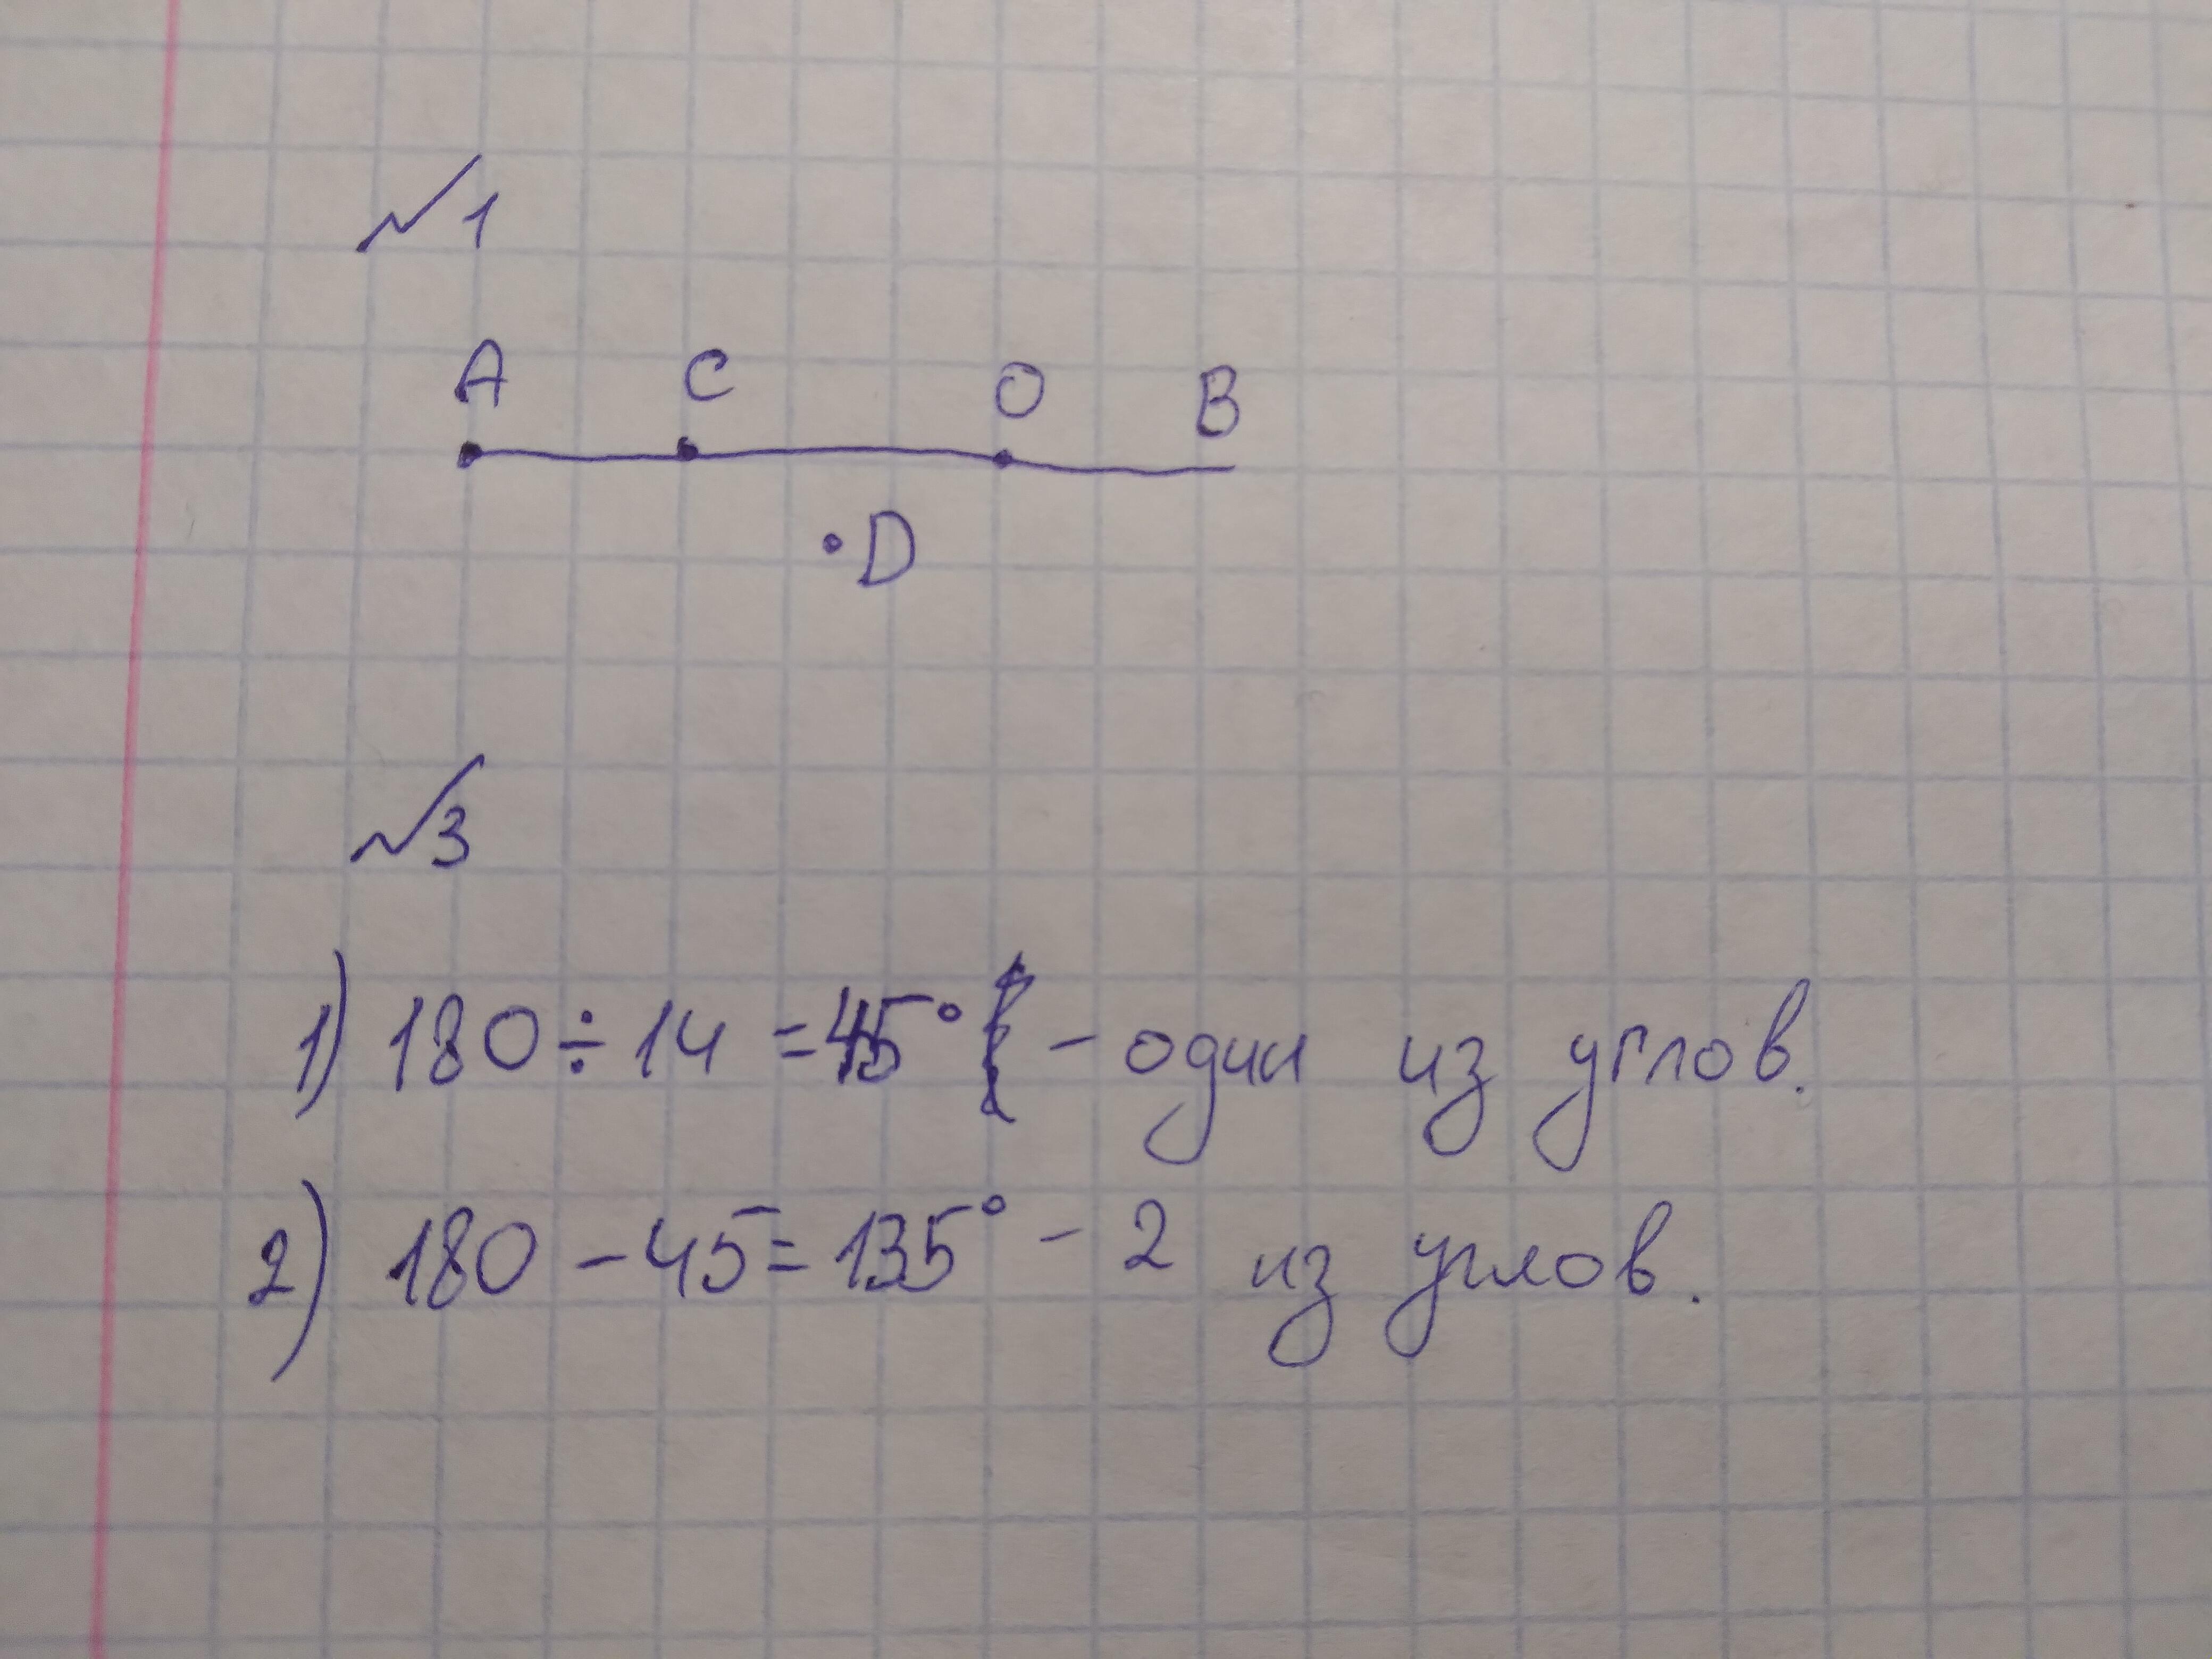 №1
A C O B
D
№3
1) 180 ÷ 14 = 45° - один из углов.
2) 180 - 45 = 135° - 2 из углов.